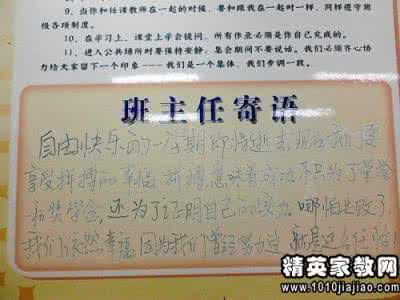 9、当你和任课教师在一起的时候，要和跟我在一起时一样，同样遵守班
级各项制度。
10、在学习上，课堂上学会提问，所有作业必须是你自己完成的。
11、进入公共场所时要保持安静；集会期间不要说话。我们必须齐心协
力给大家留下一个印象——我们是一个集体，我们步调一致。
班主任寄语
自由快乐的一星期即将逝去现在我们要
享受拼搏的幸福 拼搏意味着成功不只为了荣誉
和奖学金，还为了证明自己的实力。哪怕失败了
我们依然幸福，因为我们曾经努力过，
精英家教网
www.1010jiajiao.com